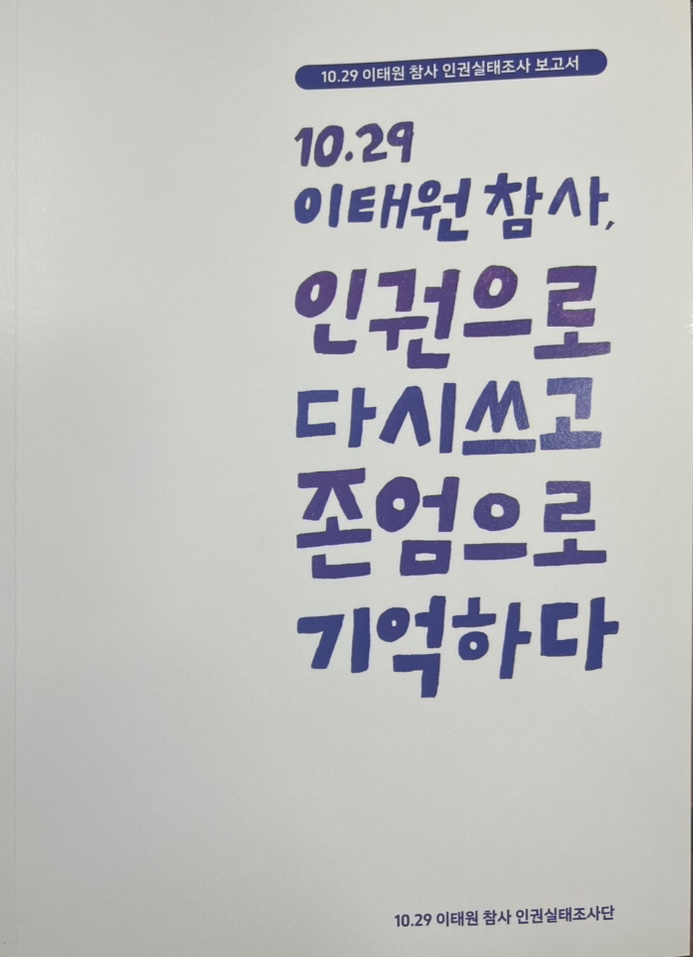 10.29 이태원 참사 인권실태조사 보고서
10.29
이태원 참사,
인권으로
다시쓰고
존엄으로
기억하다
10.29 이태원 참사 인권실태조사단